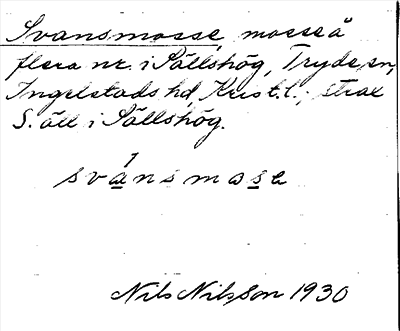 Svansmosse, mosse å
flera nr. i Sällshög, Tryde sn,
Ingelstads hd, Krist. l.; strax
S. åll i Sällshög.
svánsmosa
Nils Nilsson 1930